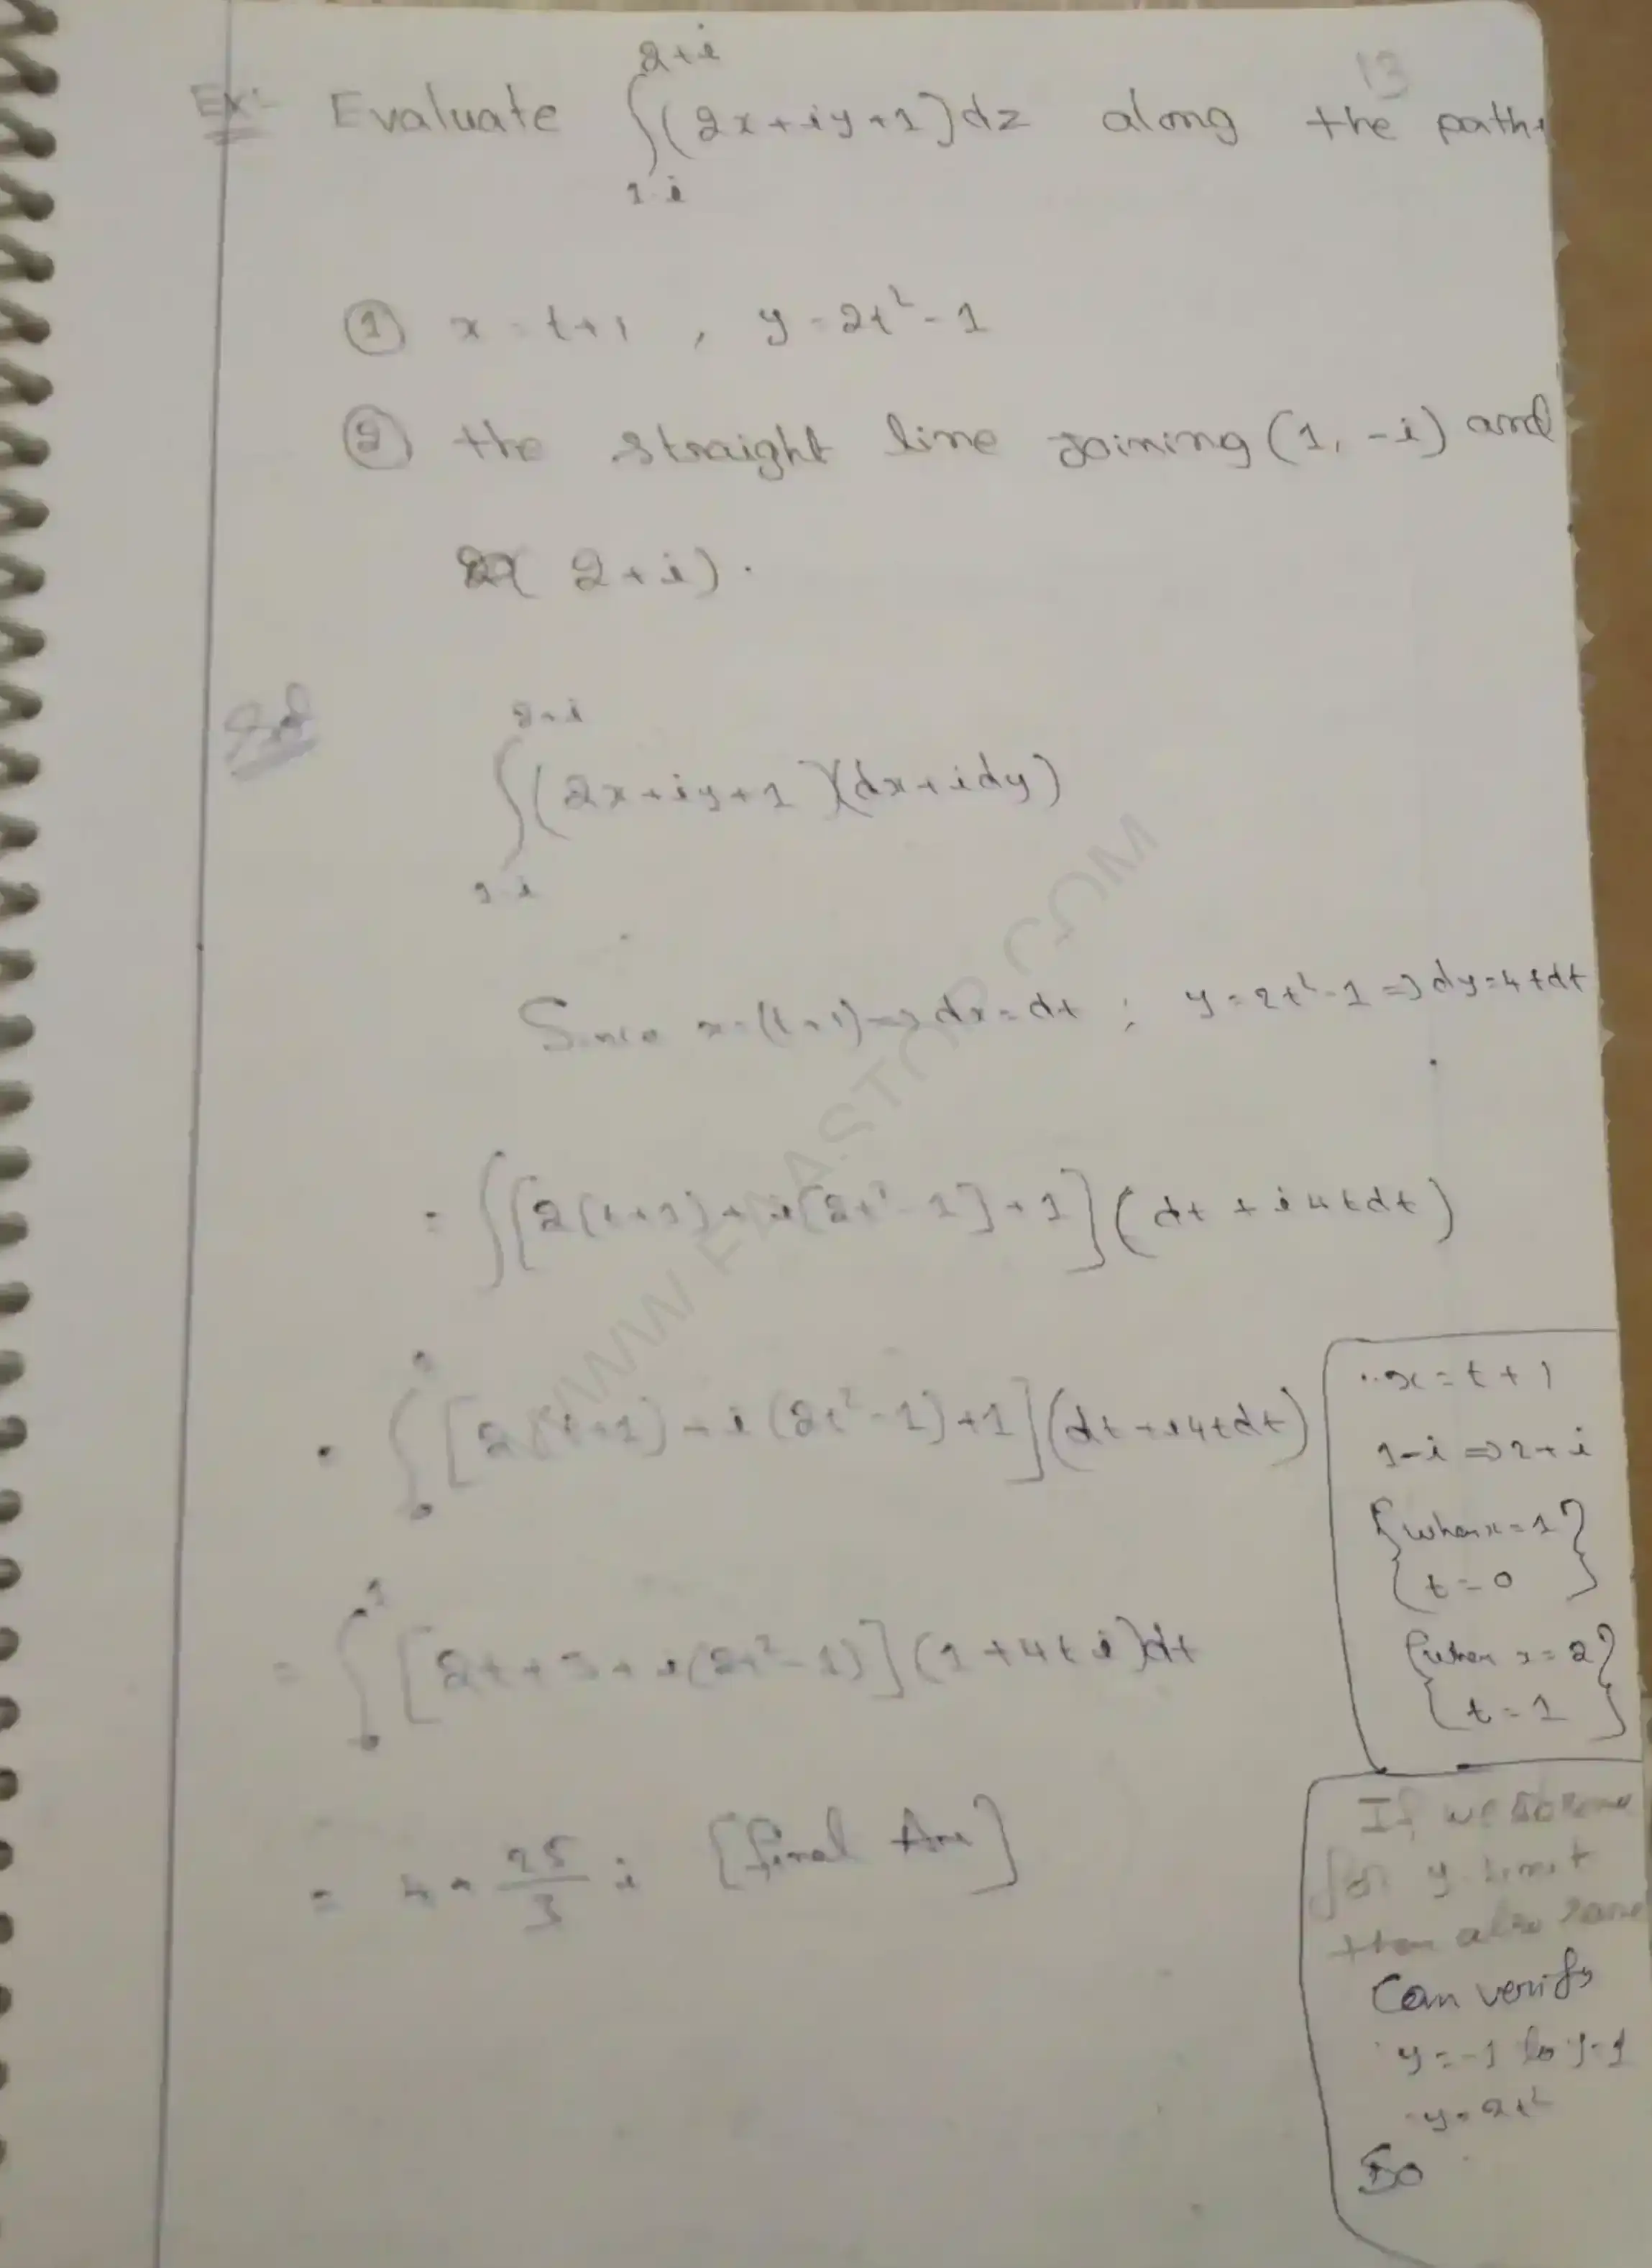 13
Ex:- Evaluate ∫_{1-i}^{2+i} (2x+iy+1)dz along the path
① x = t+1 , y = 2t² - 1
② the straight line joining (1, -i) and
( 2+i) .
Sol
∫_{1-i}^{2+i} (2x+iy+1)(dx+idy)
Since x=(t+1)=>dx=dt ; y=2t²-1=>dy=4tdt
= ∫[2(t+1)+i(2t²-1)+1](dt+i4tdt)
= ∫_0 [2(t+1)+i(2t²-1)+1](dt+i4tdt)
∵ x=t+1
1-i=>2+i
{when x=1
t=0}
{when x=2
t=1}
= ∫_0^1 [2t+3+i(2t²-1)](1+4ti)dt
= 4+25/3 i [final Ans]
If we
for y limit
then also same
Can verify
y=-1 to y=1
y=2t²
So
WWW.FAASTOP.COM